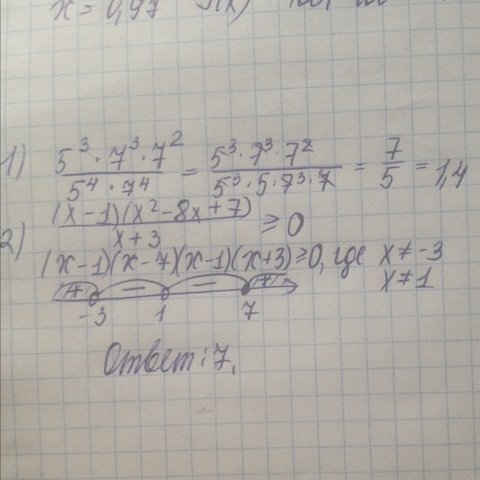 x = 0,97
1) (5³ · 7³ · 7²)/(5⁴ · 7⁴) = (5³ · 7³ · 7²)/(5³ · 5 · 7³ · 7) = 7/5 = 1,4
2) ((x-1)(x²-8x+7))/(x+3) ≥ 0
(x-1)(x-7)(x-1)(x+3) ≥ 0, где x ≠ -3
x ≠ 1
+ − − +
-3 1 7
Ответ: 7.